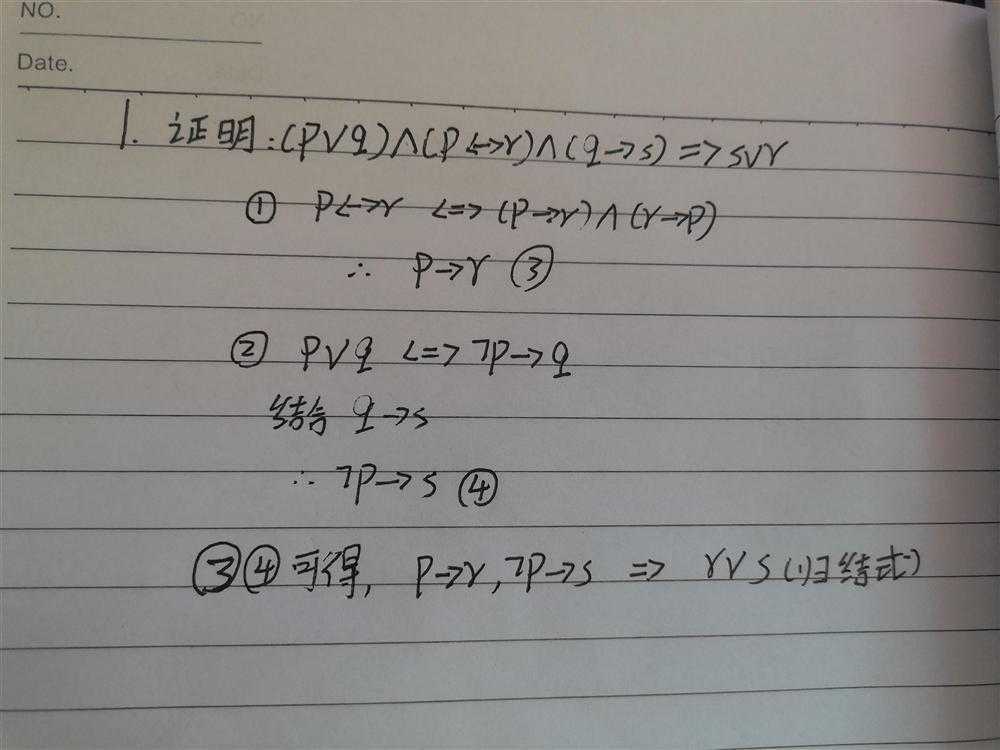 NO.
Date.
1. 证明:(P∨q)∧(P<->r)∧(q->s)=>s∨r
① P<->r <=> (P->r)∧(r->P)
∴ P->r ③
② P∨q <=> ¬P->q
结合 q->s
∴ ¬P->s ④
③④可得, P->r,¬P->s => r∨s(归结式)